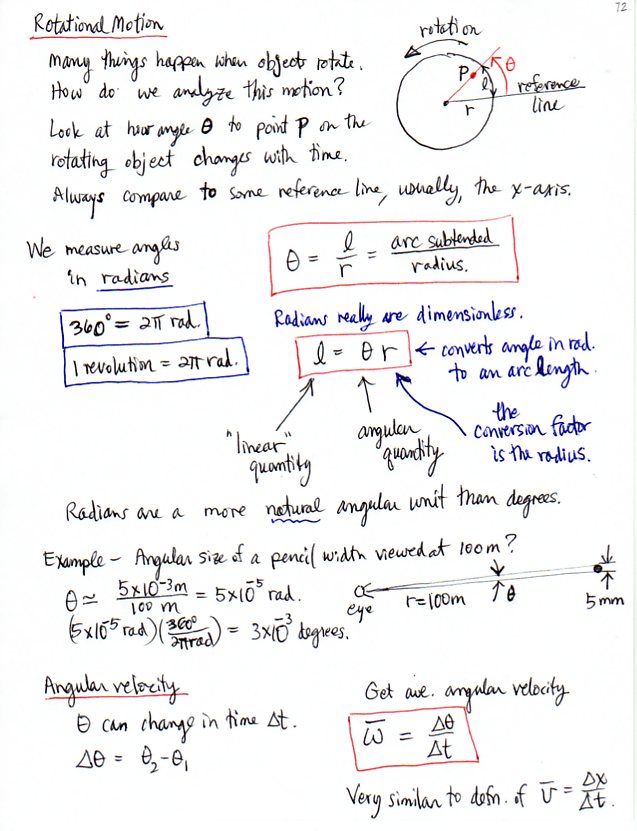 72
Rotational Motion
rotation
P
θ
l
r
reference
line
Many things happen when object rotate.
How do we analyze this motion?
Look at how angle θ to point P on the
rotating object changes with time.
Always compare to some reference line, usually, the x-axis.
We measure angles
in radians
θ = l/r = arc subtended/radius.
360° = 2π rad.
1 revolution = 2π rad.
Radians really are dimensionless.
l = θ r ← converts angle in rad.
to an arc length.
"linear"
quantity
angular
quantity
the
conversion factor
is the radius.
Radians are a more natural angular unit than degrees.
Example – Angular size of a pencil width viewed at 100m?
θ ≃ 5×10⁻³m/100 m = 5×10⁻⁵ rad.
(5×10⁻⁵ rad)(360°/2π rad) = 3×10⁻³ degrees.
eye
r=100m
θ
5mm
Angular velocity
θ can change in time Δt.
Δθ = θ₂-θ₁
Get ave. angular velocity
ω̅ = Δθ/Δt
Very similar to defn. of v̅ = Δx/Δt.